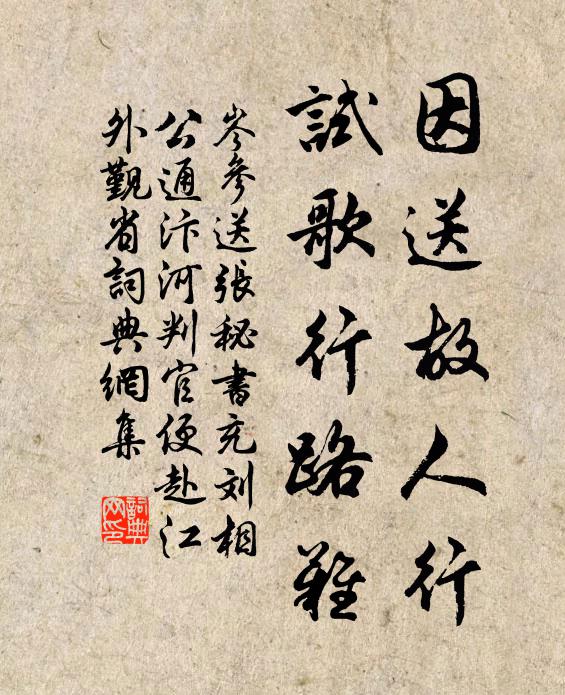 因送故人行
試歌行路難
岑參送張秘書充刘相
公通汴河判官便赴江
外觀省詞典網集
詞典
网印